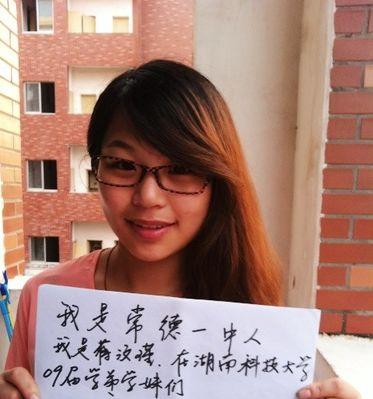 我是常德一中人
我是 在湖南科技大学
09届学弟学妹们